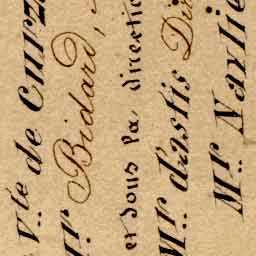 V.te de Curz
Mr Bidard,
et sous la directio
Mr d'astis Dir
Mr Navlie